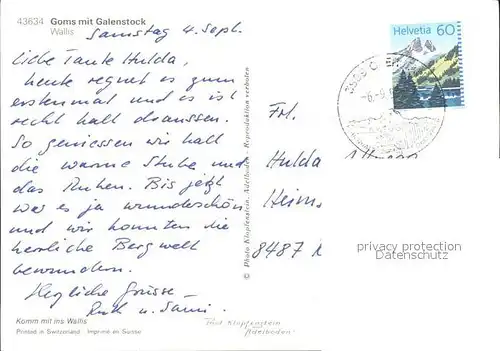 43634 Goms mit Galenstock
Wallis
Samstag 4. Sept.
Liebe Tante Hulda,
heute regnet es zum
erstenmal und es ist
recht kalt draussen.
So geniessen wir halt
die warme Stube und
das Ruhen. Bis jetzt
war es ja wunderschön
und wir konnten die
herrliche Bergwelt
bewundern.
Herzliche Grüsse
Ruth u.
Komm mit ins Wallis
Printed in Switzerland Imprimé en Suisse
© Photo Klopfenstein, Adelboden - Reproduktion verboten
Helvetia 60
Frl.
Hulda
Heim
8487
privacy protection
Datenschutz
Photo Klopfenstein
Adelboden